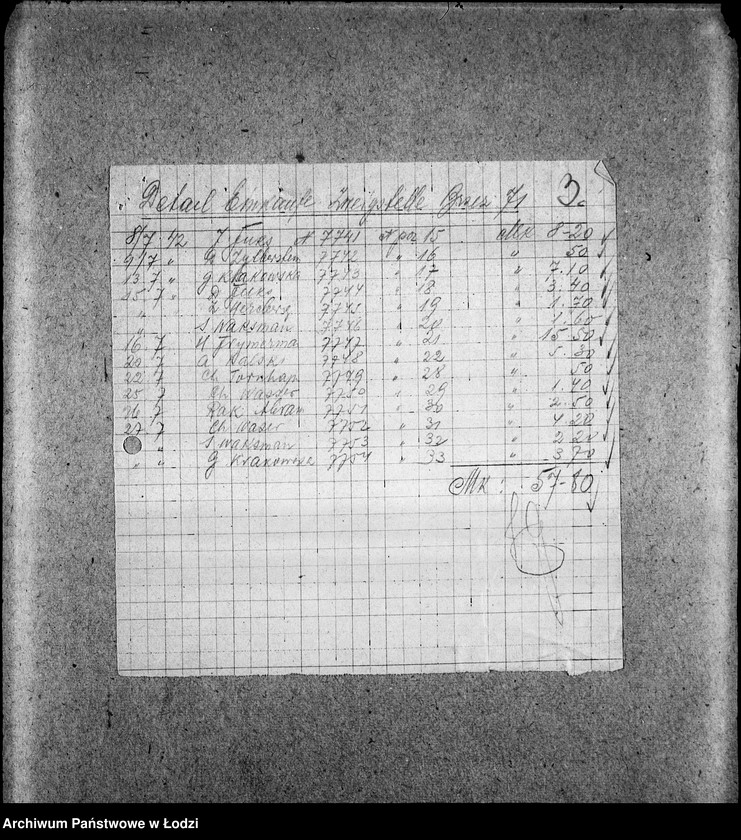 Detail Einkäufe Zweigstelle 71 3.
8/7 42 J Fuks N 7741 N por 15 Mk 8-20
9/7 " G Zylberstein 7742 " 16 " 50
13 7 " G Krakowska 7743 " 17 " 7.10
15 7 " Fuks 7744 " 18 3.40
" 7745 " 19 " 1.70
" S Waksman 7746 " 20 " 1.60
16 7 7747 " 21 " 15.50
20 7 7748 " 22 " 5.
22 7 Ch 7749 " 28 50
25 7 Ch Wasser 7750 " 29 " 1.40
26 7 Rak Abram 7751 " 30 " 2.50
27 7 Ch Waser 7752 " 31 " 4.20
" " S Waksman 7753 " 32 " 2.20
" " G Krakowska 7754 " 33 " 3.70
Mk: 57-80
Archiwum Państwowe w Łodzi